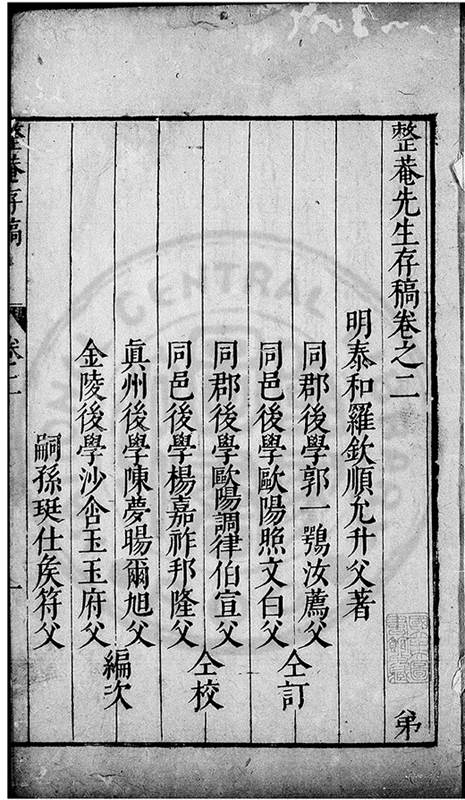 整菴先生存稿卷之二
弟
明泰和羅欽順允升父著
同郡後學郭一鶚汝薦父
同邑後學歐陽照文白父
仝訂
同郡後學歐陽調律伯宣父
同邑後學楊嘉祚邦隆父
仝校
眞州後學陳夢暘爾旭父
金陵後學沙含玉玉府父
編次
嗣孫珽仕矦符父
整菴存稿
卷之二
一
CENTRAL